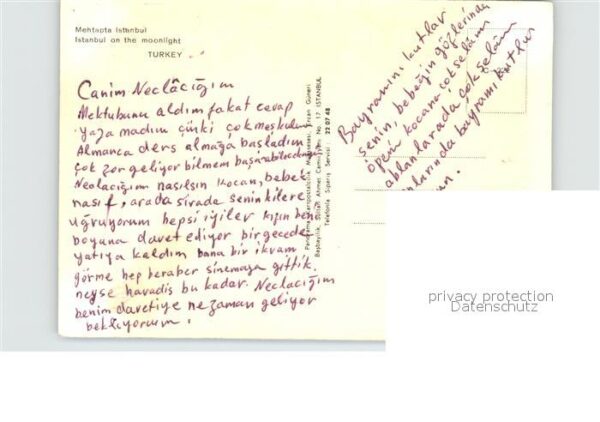 Mehtapta Istanbul
Istanbul on the moonlight
TURKEY
Canim Neclâcığım
Mektubunu aldım fakat cevap
yaza madım çünki çok meskulum
Almanca ders almağa başladım
çok zor geliyor bilmem başara
Neclacığım nasılsın kocan, bebek
nasıl, arada sirada seninkilere
uğruyorum hepsi iyiler kızın beni
boyuna davet ediyor bir gecede
yatıya kaldım bana bir ikram
görme hep beraber sinemaya gittik.
neyse havadis bu kadar. Neclacığım
benim davetiye ne zaman geliyor
bekliyorum.
Bayramını kutlar
senin, bebeğin gözlerinden
öperim kocana çok selâm
ablanlarada çok selâm
onlarında bayramı kutlu
olsun.
Kartpostalcılık Müessesesi, Ercan Güneri
Başbayilik, Sultan Ahmet Camii No. 17 ISTANBUL
Telefonla Sipariş Servisi: 22 07 48
privacy protection
Datenschutz